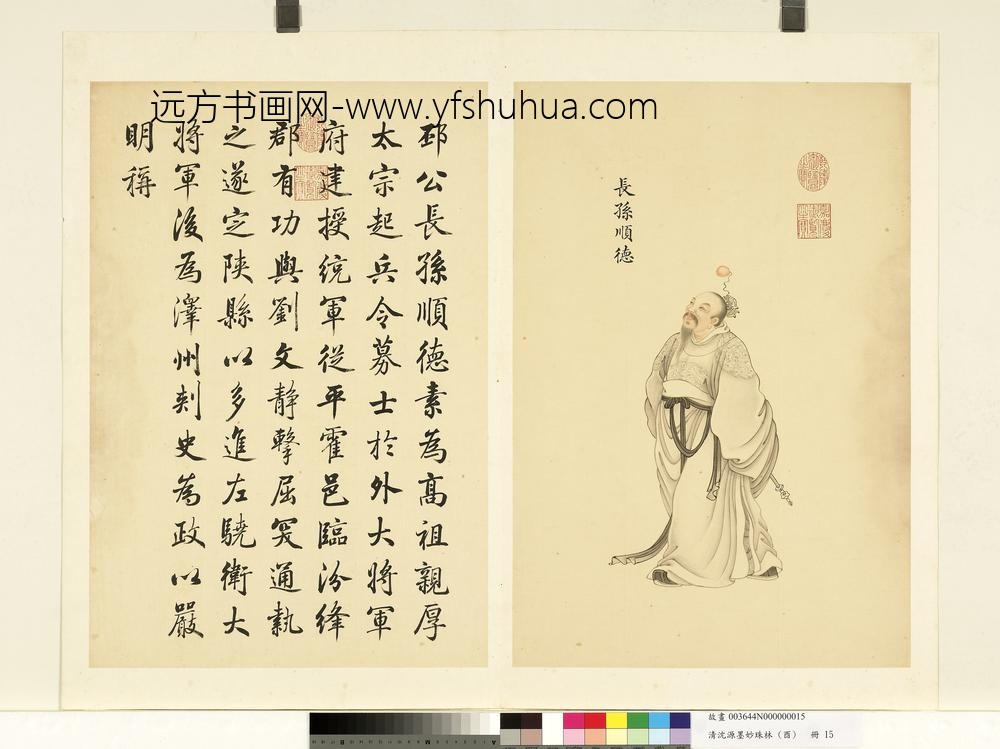 远方书画网-www.yfshuhua.com
長孫順德
邳公長孫順德素為高祖親厚
太宗起兵令募士於外大將軍
府建授統軍從平霍邑臨汾絳
郡有功與劉文静擊屈突通執
之遂定陝縣以多進左驍衛大
將軍後為澤州刺史為政以嚴
明稱
故畫 003644N000000015
清沈源墨妙珠林（酉） 冊 15